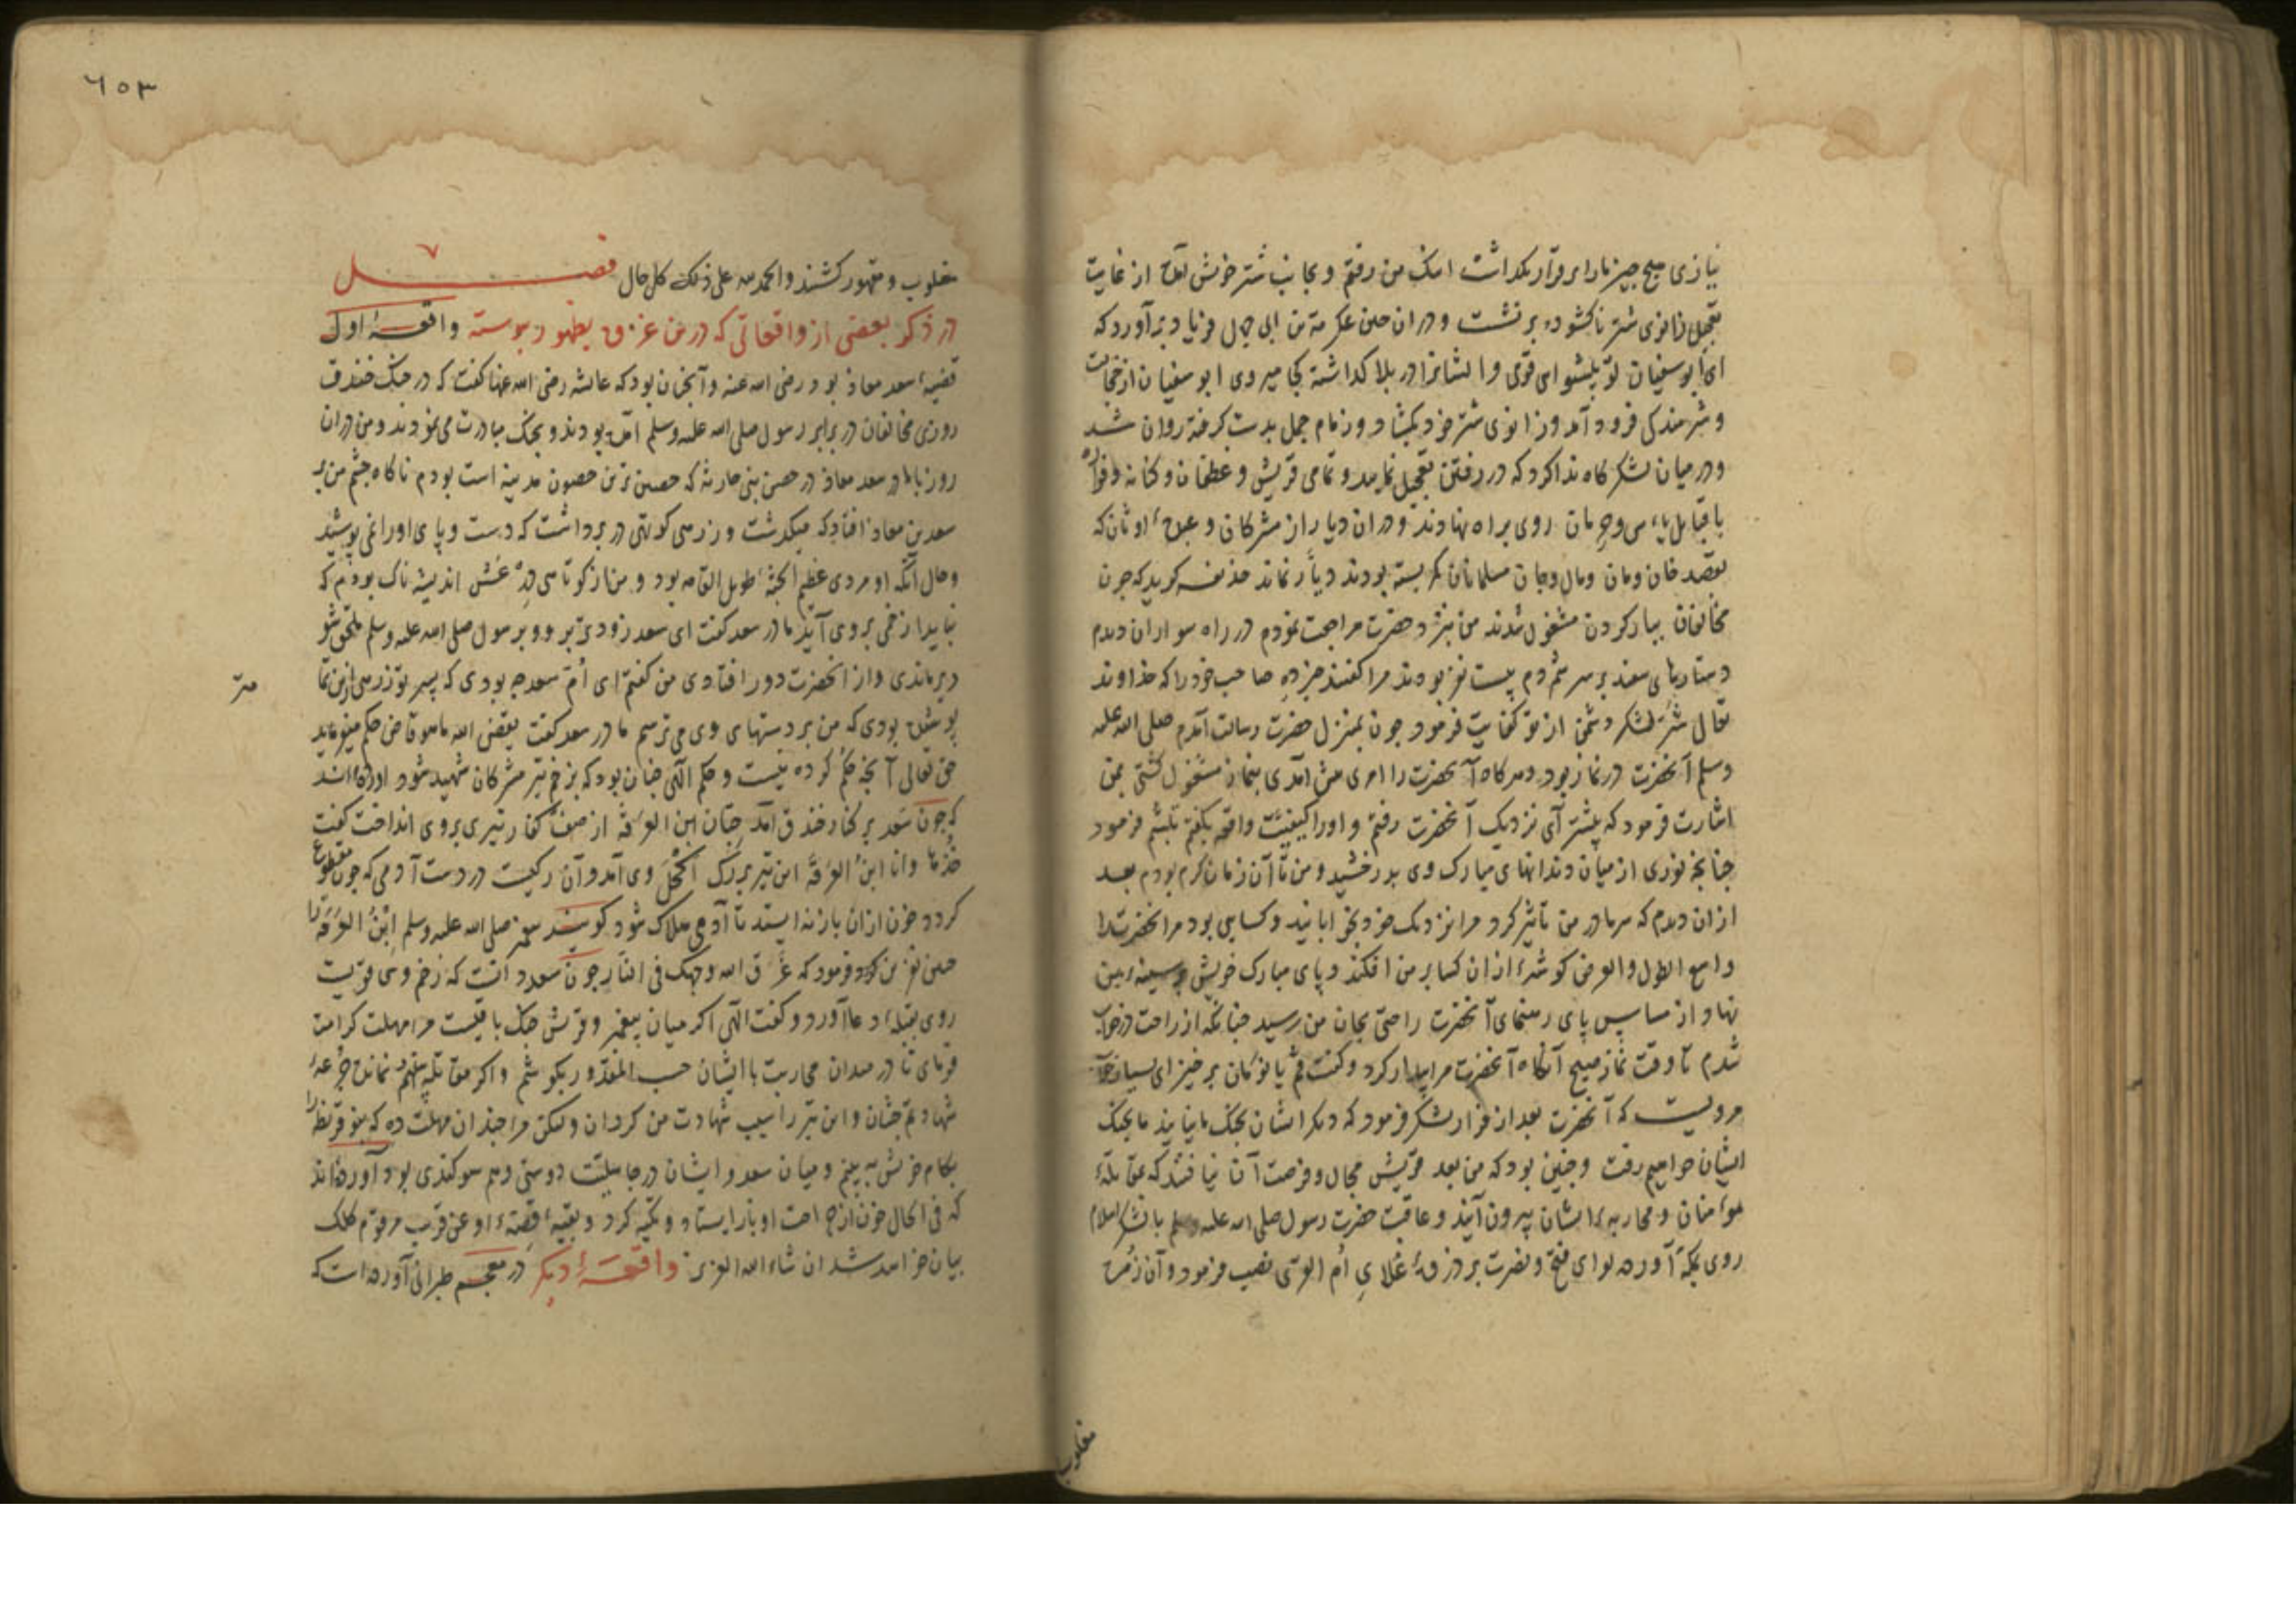 نیازی هیچ چیز مارا برقرار نگذاشت اینک من رفتم و بجانب شتر خویش آمد از غایت
تعجیل زانوی شتر ناکشوده برنشست و در ان حین عکرمة بن ابی جهل فریاد برآورد که
ای ابو سفیان تو پیشوای قومی و ایشانرا در بلا گذاشته کجا میروی ابو سفیان از خجالت
و شرمندگی فرود آمد و زانوی شتر خود بگشاد و زمام جمل بدست گرفته روان شد
و در میان لشکرگاه ندا کرد که در رفتن تعجیل نمایید و تمامی قریش و غطفان و کنانه و فزاره
با قبایل یاس و حرمان روی براه نهادند و دران دیار از مشرکان و عبدهٔ اوثان که
بقصد خان ومان ومال وجان مسلمانان کمر بسته بودند دیّار نماند حذیفه گوید که چون
مخالفان ببار کردن مشغول شدند من نیز بحضرت مراجعت نمودم در راه سواران دیدم
دستارهای سفید بر سر شمردم بیست نفر بودند مرا گفتند خبر ده صاحب خود را که خداوند
تعالی شرّ لشکر دشمن از تو کفایت فرمود چون بمنزل حضرت رسالت آمدم صلی الله علیه
وسلم آنحضرت در نماز بود و هرگاه آنحضرت را امری پیش آمدی بنماز مشغول گشتی بمن
اشارت فرمود که پیشتر آی نزدیک آنحضرت رفتم و اورا کیفیّت واقعه بگفتم تبسّم فرمود
چنانچه نوری از میان دندانهای مبارک وی بدرخشید و من تا آن زمان گرم بودم بعد
ازان دیدم که سرما در من تأثیر کرد مرا نزدیک خود بخوابانید و کسایی بود مر انحضرت را
واسع الطول والعرض گوشهٔ ازان کسا بر من افکند و پای مبارک خویش بر سینهٔ من
نهاد از مساس پای رهنمای آنحضرت راحتی بجان من رسید چنانکه از راحت در خواب
شدم تا وقت نماز صبح آنگاه آنحضرت مرا بیدار کرد و گفت قُم یا نومان برخیز ای بسیار خواب
مرویست که آنحضرت بعد از فرار لشکر فرمود که دیگر ایشان بجنگ ما نیایند ما بجنگ
ایشان خواهیم رفت و چنین بود که من بعد قریش مجال و فرصت آن نیافتند که بمقابلهٔ
مومنان و محاربهٔ ایشان بیرون آیند و عاقبت حضرت رسول صلی الله علیه وسلم با لشکر اسلام
روی بمکّه آورده لوای فتح و نصرت بر ذروهٔ علای اُم القری نصب فرمود و آن زمره
مغلوب
٦٥٣
مغلوب و مقهور گشتند والحمد لله علی ذلک کل حال فصل ٧
در ذکر بعضی از واقعاتی که درین غزوه بظهور پیوسته واقعهٔ اول
قضیهٔ سعد معاذ بود رضی الله عنه و آنچنان بود که عایشه رضی الله عنها گفت که در جنگ خندق
روزی مخالفان در برابر رسول صلی الله علیه وسلم آمده بودند و بجنگ مبادرت می نمودند و من دران
روز با مادر سعد معاذ در حصن بنی حارثه که حصین ترین حصون مدینه است بودم ناگاه چشم من بر
سعد بن معاذ افتاد که میگذشت و زرهی کوتهی در برداشت که دست و پای اورا نمی پوشید
و حال آنکه او مردی عظیم الجثهٔ طویل القامه بود و من از کوتاهی زرهش اندیشه ناک بودم که
نباید از زخمی بروی آید مادر سعد گفت ای سعد زودتر برو و برسول صلی الله علیه وسلم ملحق شو
دیر ماندی و از آنحضرت دور افتادی من گفتم ای اُمّ سعد چه بودی که پسر تو زرهی ازین تمامتر
پوشیده بودی که من بر دستهای وی می ترسم مادر سعد گفت یقضی الله ما هو قاض حکم میفرماید
حق تعالی آنچه حکم کرده نیست و حکم الهی چنان بود که بزخم تیر مشرکان شهید شود آورده اند
که چون سعد بر کنار خندق آمد حِبّان ابن العَرِقَه از صف کفار تیری بروی انداخت گفت
خُذها وانا ابنُ العَرِقَه این تیر بر رگ اَکْحَل وی آمد و آن رگیست در دست آدمی که چون مقطوع
گردد خون ازان باز نه ایستد تا آدمی هلاک شود گویند پیغمبر صلی الله علیه وسلم ابنُ العَرِقَه را
نفرین کرد و فرمود که عَرَّق الله وجهک فی النار چون سعد دانست که زخم وی قویست
روی بقبلهٔ دعا آورد و گفت الهی اگر میان پیغمبر و قریش جنگ باقیست مرا مهلت کرامت
فرمای تا در میدان محاربت با ایشان حسب المقدور بکوشم و اگر مقاتله نمانده جرعهٔ
شهادتم چشان و این تیر را سبب شهادت من گردان ولیکن مرا چندان مهلت ده که بنو قریظه را
بکام خویش به بینم و میان سعد و ایشان در جاهلیّت دوستی و هم سوگندی بود آورده اند
که فی الحال خون از جراحت او باز ایستاد و تکیه کرد و بقیهٔ قصهٔ او عن قریب مرقوم کلک
بیان خواهد شد ان شاء الله العزیز واقعهٔ دیگر در معجم طبرانی آورده است که